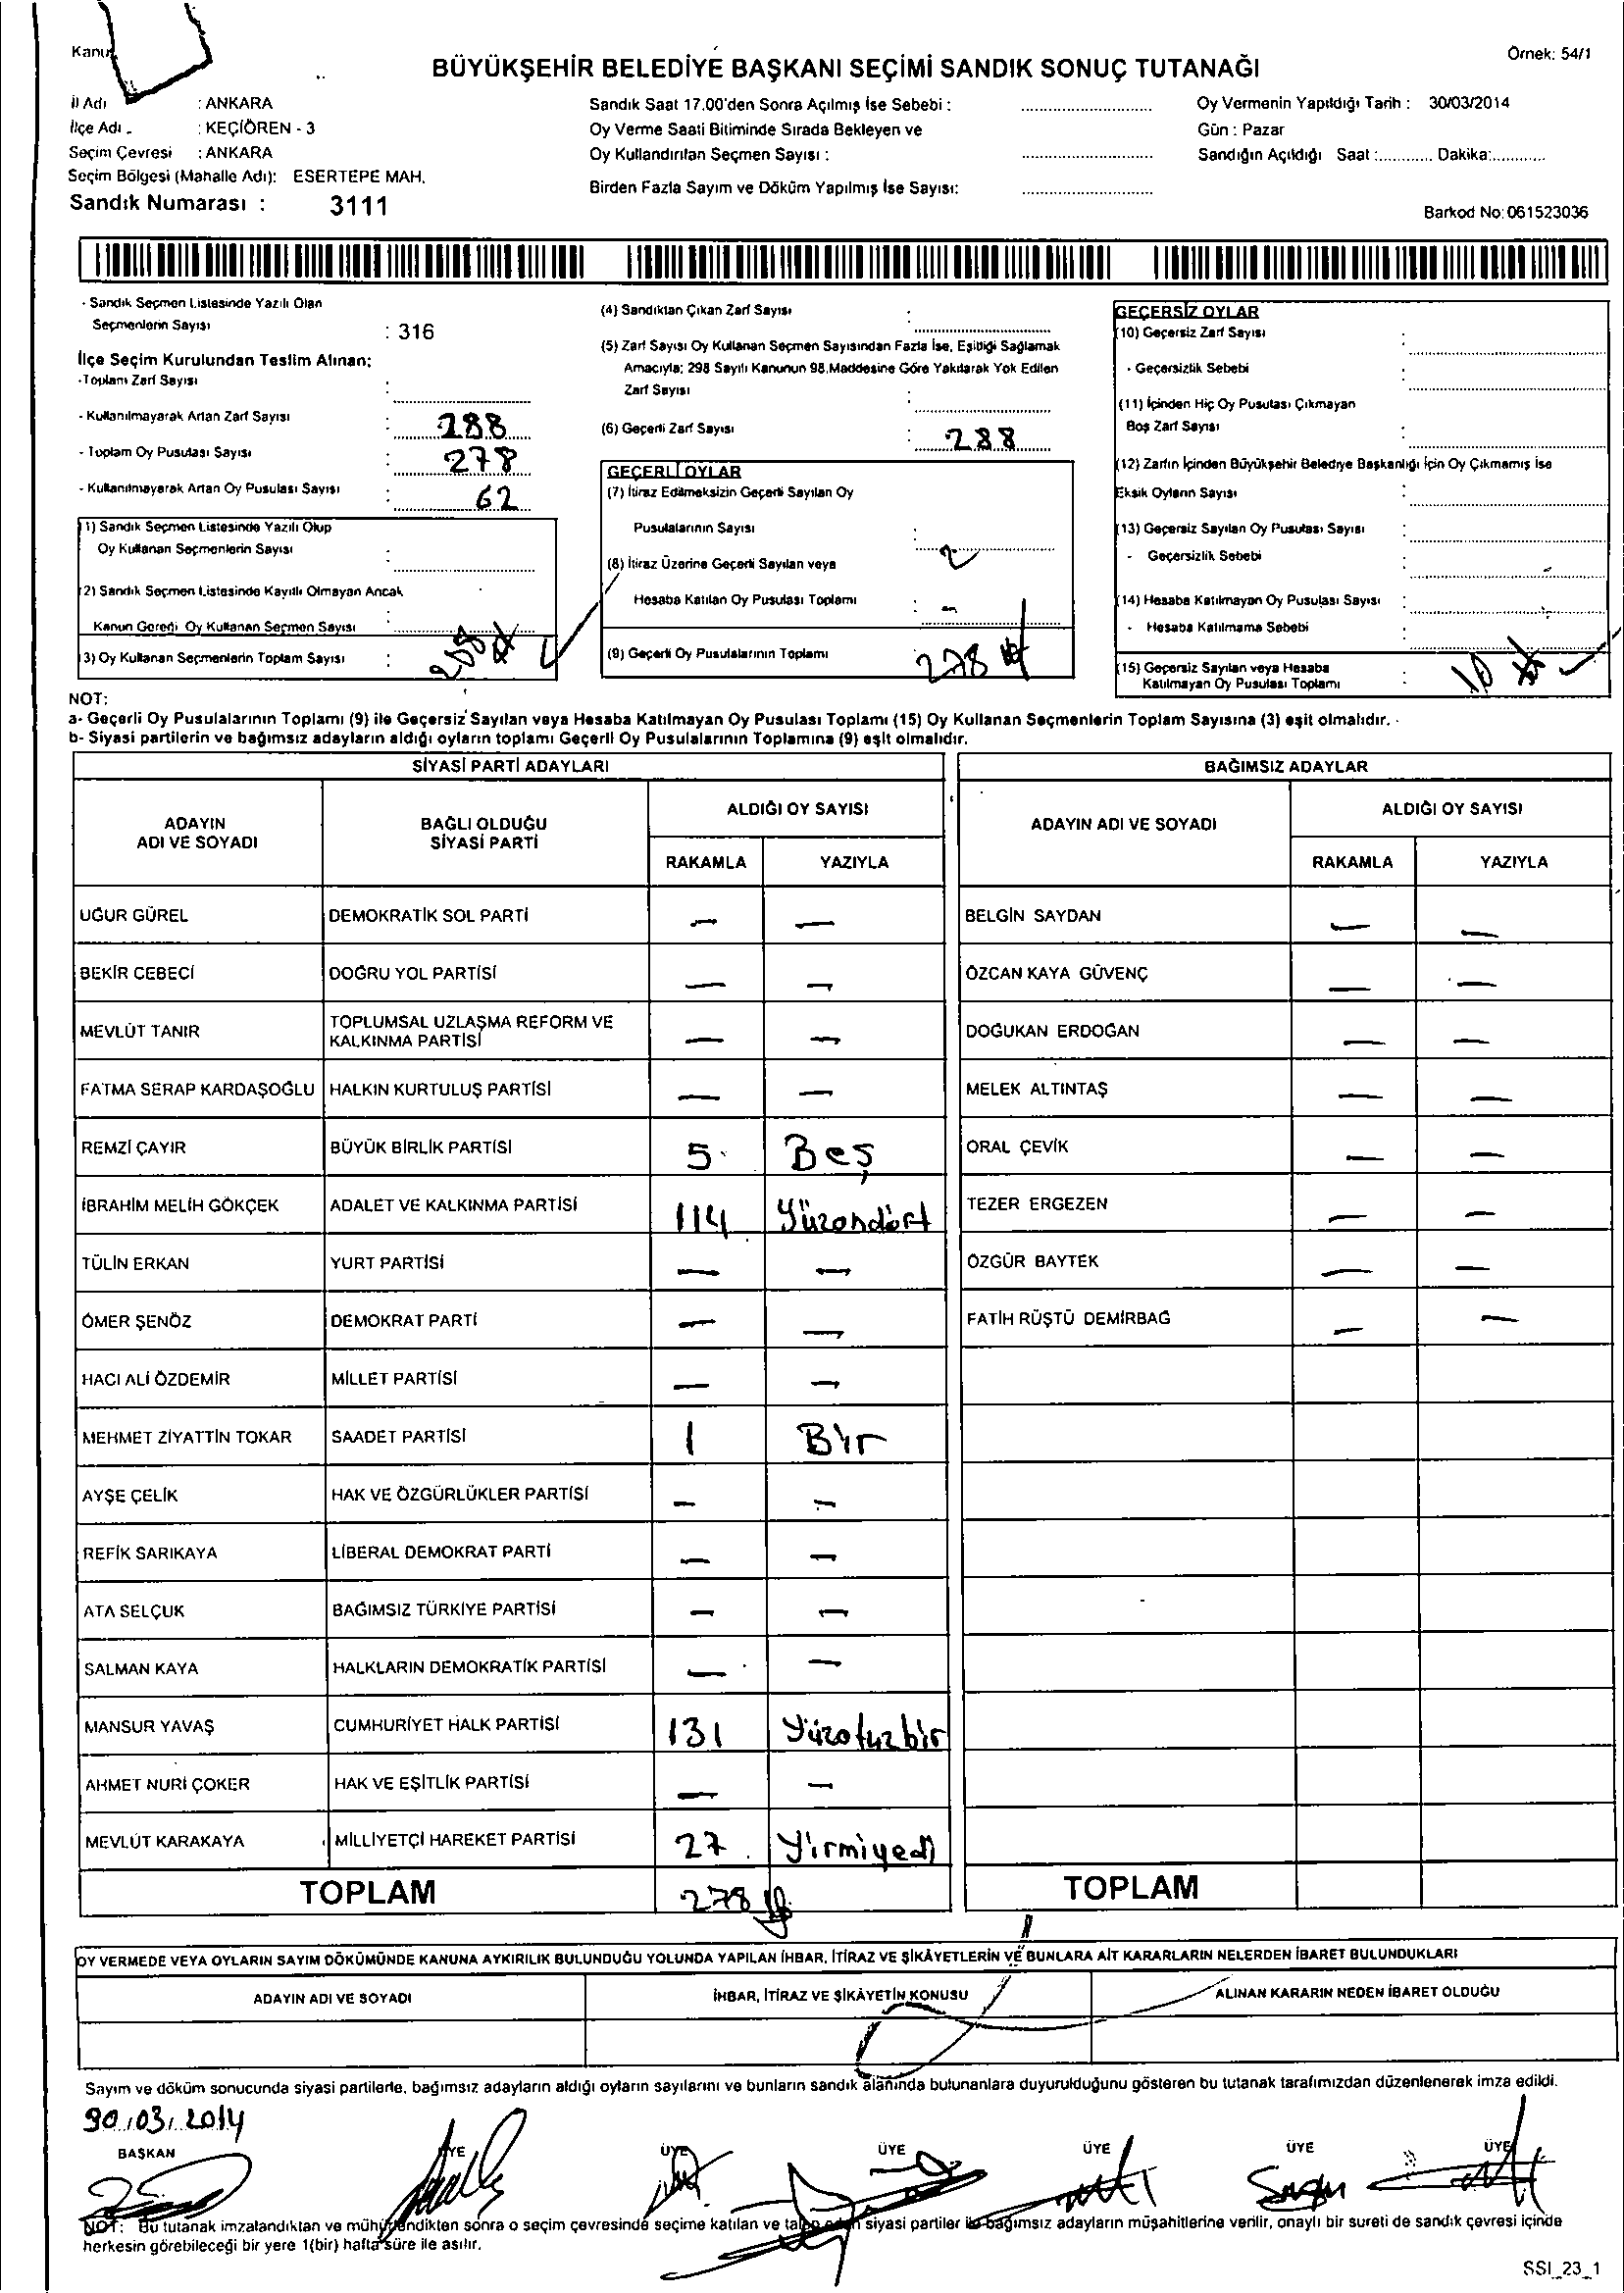 Örnek: 54/1
BÜYÜKŞEHİR BELEDİYE BAŞKANI SEÇİMİ SANDIK SONUÇ TUTANAĞI
İl Adı : ANKARA
İlçe Adı : KEÇİÖREN - 3
Seçim Çevresi : ANKARA
Seçim Bölgesi (Mahalle Adı): ESERTEPE MAH.
Sandık Numarası : 3111
Sandık Saat 17.00'den Sonra Açılmış İse Sebebi :
Oy Verme Saati Bitiminde Sırada Bekleyen ve
Oy Kullandırılan Seçmen Sayısı :
Birden Fazla Sayım ve Döküm Yapılmış İse Sayısı:
Oy Vermenin Yapıldığı Tarih : 30/03/2014
Gün : Pazar
Sandığın Açıldığı Saat :............ Dakika:............
Barkod No: 061523036
- Sandık Seçmen Listesinde Yazılı Olan
Seçmenlerin Sayısı : 316
İlçe Seçim Kurulundan Teslim Alınan:
-Toplam Zarf Sayısı :
- Kullanılmayarak Artan Zarf Sayısı : 288
- Toplam Oy Pusulası Sayısı : 278
- Kullanılmayarak Artan Oy Pusulası Sayısı : 62
1) Sandık Seçmen Listesinde Yazılı Olup
Oy Kullanan Seçmenlerin Sayısı :
2) Sandık Seçmen Listesinde Kayıtlı Olmayan Ancak
Kanun Gereği Oy Kullanan Seçmen Sayısı
3) Oy Kullanan Seçmenlerin Toplam Sayısı :
(4) Sandıktan Çıkan Zarf Sayısı :
(5) Zarf Sayısı Oy Kullanan Seçmen Sayısından Fazla İse, Eşitliği Sağlamak
Amacıyla; 298 Sayılı Kanunun 98.Maddesine Göre Yakılarak Yok Edilen
Zarf Sayısı :
(6) Geçerli Zarf Sayısı : 288
GEÇERLİ OYLAR
(7) İtiraz Edilmeksizin Geçerli Sayılan Oy
Pusulalarının Sayısı :
(8) İtiraz Üzerine Geçerli Sayılan veya
Hesaba Katılan Oy Pusulası Toplamı : -
(9) Geçerli Oy Pusulalarının Toplamı : 278
GEÇERSİZ OYLAR
(10) Geçersiz Zarf Sayısı :
- Geçersizlik Sebebi :
(11) İçinden Hiç Oy Pusulası Çıkmayan
Boş Zarf Sayısı :
(12) Zarfın İçinden Büyükşehir Belediye Başkanlığı İçin Oy Çıkmamış İse
Eksik Oyların Sayısı :
(13) Geçersiz Sayılan Oy Pusulası Sayısı :
- Geçersizlik Sebebi :
(14) Hesaba Katılmayan Oy Pusulası Sayısı :
- Hesaba Katılmama Sebebi :
(15) Geçersiz Sayılan veya Hesaba
Katılmayan Oy Pusulası Toplamı : 10
NOT:
a- Geçerli Oy Pusulalarının Toplamı (9) ile Geçersiz Sayılan veya Hesaba Katılmayan Oy Pusulası Toplamı (15) Oy Kullanan Seçmenlerin Toplam Sayısına (3) eşit olmalıdır.
b- Siyasi partilerin ve bağımsız adayların aldığı oyların toplamı Geçerli Oy Pusulalarının Toplamına (9) eşit olmalıdır.
SİYASİ PARTİ ADAYLARI
BAĞIMSIZ ADAYLAR
ADAYIN ADI VE SOYADI
BAĞLI OLDUĞU SİYASİ PARTİ
ALDIĞI OY SAYISI
RAKAMLA YAZIYLA
ADAYIN ADI VE SOYADI
ALDIĞI OY SAYISI
RAKAMLA YAZIYLA
UĞUR GÜREL DEMOKRATİK SOL PARTİ — — BELGİN SAYDAN — —
BEKİR CEBECİ DOĞRU YOL PARTİSİ — — ÖZCAN KAYA GÜVENÇ — —
MEVLÜT TANIR TOPLUMSAL UZLAŞMA REFORM VE KALKINMA PARTİSİ — — DOĞUKAN ERDOĞAN — —
FATMA SERAP KARDAŞOĞLU HALKIN KURTULUŞ PARTİSİ — — MELEK ALTINTAŞ — —
REMZİ ÇAYIR BÜYÜK BİRLİK PARTİSİ 5 Beş ORAL ÇEVİK — —
İBRAHİM MELİH GÖKÇEK ADALET VE KALKINMA PARTİSİ 114 Yüzondört TEZER ERGEZEN — —
TÜLİN ERKAN YURT PARTİSİ — — ÖZGÜR BAYTEK — —
ÖMER ŞENÖZ DEMOKRAT PARTİ — — FATİH RÜŞTÜ DEMİRBAĞ — —
HACI ALİ ÖZDEMİR MİLLET PARTİSİ — —
MEHMET ZİYATTİN TOKAR SAADET PARTİSİ 1 Bir
AYŞE ÇELİK HAK VE ÖZGÜRLÜKLER PARTİSİ — —
REFİK SARIKAYA LİBERAL DEMOKRAT PARTİ — —
ATA SELÇUK BAĞIMSIZ TÜRKİYE PARTİSİ — —
SALMAN KAYA HALKLARIN DEMOKRATİK PARTİSİ — —
MANSUR YAVAŞ CUMHURİYET HALK PARTİSİ 131 Yüzotuzbir
AHMET NURİ ÇOKER HAK VE EŞİTLİK PARTİSİ — —
MEVLÜT KARAKAYA MİLLİYETÇİ HAREKET PARTİSİ 27 Yirmiyedi
TOPLAM 278 TOPLAM
OY VERMEDE VEYA OYLARIN SAYIM DÖKÜMÜNDE KANUNA AYKIRILIK BULUNDUĞU YOLUNDA YAPILAN İHBAR, İTİRAZ VE ŞİKÂYETLERİN VE BUNLARA AİT KARARLARIN NELERDEN İBARET BULUNDUKLARI
ADAYIN ADI VE SOYADI İHBAR, İTİRAZ VE ŞİKÂYETİN KONUSU ALINAN KARARIN NEDEN İBARET OLDUĞU
Sayım ve döküm sonucunda siyasi partilerle, bağımsız adayların aldığı oyların sayılarını ve bunların sandık alanında bulunanlara duyurulduğunu gösteren bu tutanak tarafımızdan düzenlenerek imza edildi.
30.03.2014
BAŞKAN ÜYE ÜYE ÜYE ÜYE ÜYE ÜYE
NOT: Bu tutanak imzalandıktan ve mühürlendikten sonra o seçim çevresinde seçime katılan ve talep eden siyasi partiler ile bağımsız adayların müşahitlerine verilir, onaylı bir sureti de sandık çevresi içinde
herkesin görebileceği bir yere 1(bir) hafta süre ile asılır.
SSI_23_1